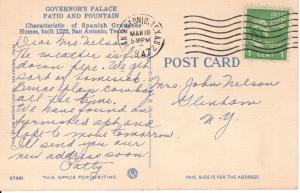 GOVERNOR'S PALACE
PATIO AND FOUNTAIN
Characteristic of Spanish Grandees
Homes, built 1722, San Antonio, Texas
ANTONIO, TEXAS
MAR 18
5 PM
1947
1 CENT 1
POST CARD
Dear Mrs. Nelson,
The weather is
down here. We get
sort of homesick.
Bruce plays cowboy
all the time.
We have found our
furnished apt. and
hope to move tomorrow.
I'll send you our
new address soon
Patty
Mrs. John Nelson
Glenham
N-Y
47481
THIS SPACE FOR WRITING
THIS SIDE IS FOR THE ADDRESS